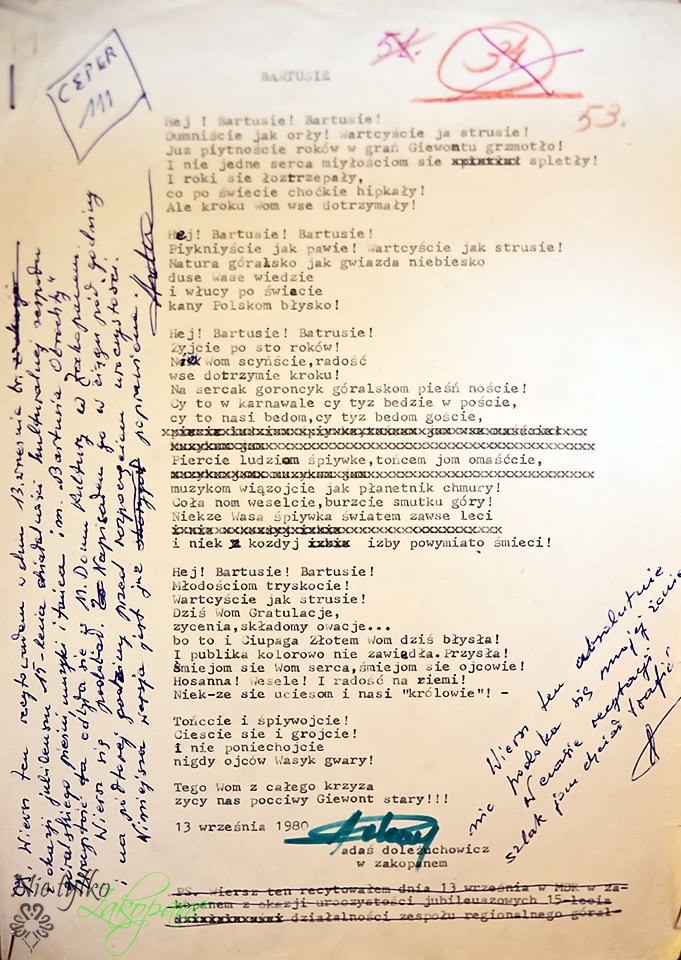 51.
34
53.
CEPER
111
BARTUSIE
Hej ! Bartusie! Bartusie!
Dumniście jak orły! Wartcyście ja strusie!
Juz piytnoście roków w grań Giewontu grzmotło!
I nie jedne serca miyłościom sie spletły!
I roki sie łoztrzepały,
co po świecie choćkie hipkały!
Ale kroku Wom wse dotrzymały!
Hej! Bartusie! Bartusie!
Piykniyście jak pawie! Wartcyście jak strusie!
Natura góralsko jak gwiazda niebiesko
duse Wase wiedzie
i włucy po świacie
kany Polskom błysko!
Hej! Bartusie! Batrusie!
Zyjcie po sto roków!
Niek Wom scyńście,radość
wse dotrzymie kroku!
Na sercak goroncyk góralskom pieśń noście!
Cy to w karnawale cy tyz bedzie w poście,
cy to nasi bedom,cy tyz bedom goście,
Piercie ludziom śpiywke,tońcem jom omaśćcie,
muzykom wiązojcie jak płanetnik chmury!
Coła nom weselcie,burzcie smutku góry!
Niekze Wasa śpiywka światem zawse leci
i niek z kozdyj izby powymiato śmieci!
Hej! Bartusie! Bartusie!
Młodościom tryskocie!
Wartcyście jak strusie!
Dziś Wom Gratulacje,
zycenia,składomy owacje...
bo to i Ciupaga Złotem Wom dziś błysła!
I publika kolorowo nie zawiedła.Przysła!
Śmiejom sie Wom serca,śmiejom sie ojcowie!
Hosanna! Wesele! I radość na ziemi!
Niek-ze sie uciesom i nasi "królowie"! -
Tońccie i śpiywojcie!
Ciescie sie i grojcie!
i nie poniechojcie
nigdy ojców Wasyk gwary!
Tego Wom z całego krzyza
zycy nas pocciwy Giewont stary!!!
13 września 1980
adaś doleżuchowicz
w zakopanem
PS. Wiersz ten recytowałem dnia 13 września w MDK w za-
kopanem z okazji uroczystości jubileuszowych 15-lecia
działalności zespołu regionalnego góral-
Wiersz ten recytowałem w dniu 13 września br.
z okazji jubileuszu 15-lecia działalności kulturalnej zespołu
góralskiego pieśni muzyki i tańca im. Bartusia Obrochty
Uroczystość ta odbyła się w M. Domu Kultury w Zakopanem.
Wiersz się podobał. Napisałem go w ciągu pół godziny
na półtorej godziny przed rozpoczęciem uroczystości.
Niniejsza wersja jest już poprawiona.
Wiersz ten absolutnie
nie podoba się mojej żonie
W czasie recytacji
szlak jom chciał trafić
Nie tylko
Zakopane